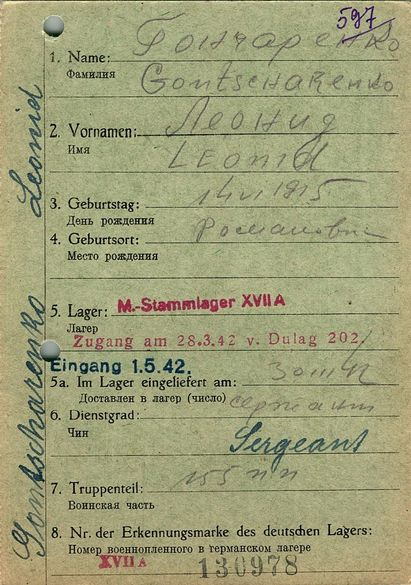 597
Гончаренко
1. Name:
Фамилия
Gontscharenko
Леонид
2. Vornamen:
Имя
Leonid
3. Geburtstag:
День рождения
4. Geburtsort: Романович
Место рождения
5. Lager: M.-Stammlager XVII A
Лагерь
Zugang am 28.3.42 v. Dulag 202.
Eingang 1.5.42.
5a. Im Lager eingeliefert am:
Доставлен в лагерь (число)
6. Dienstgrad: сержант
Чин
Sergeant
155 пп
7. Truppenteil:
Воинская часть
8. Nr. der Erkennungsmarke des deutschen Lagers:
Номер военнопленного в германском лагере
XVII A 130978
Gontscharenko Leonid